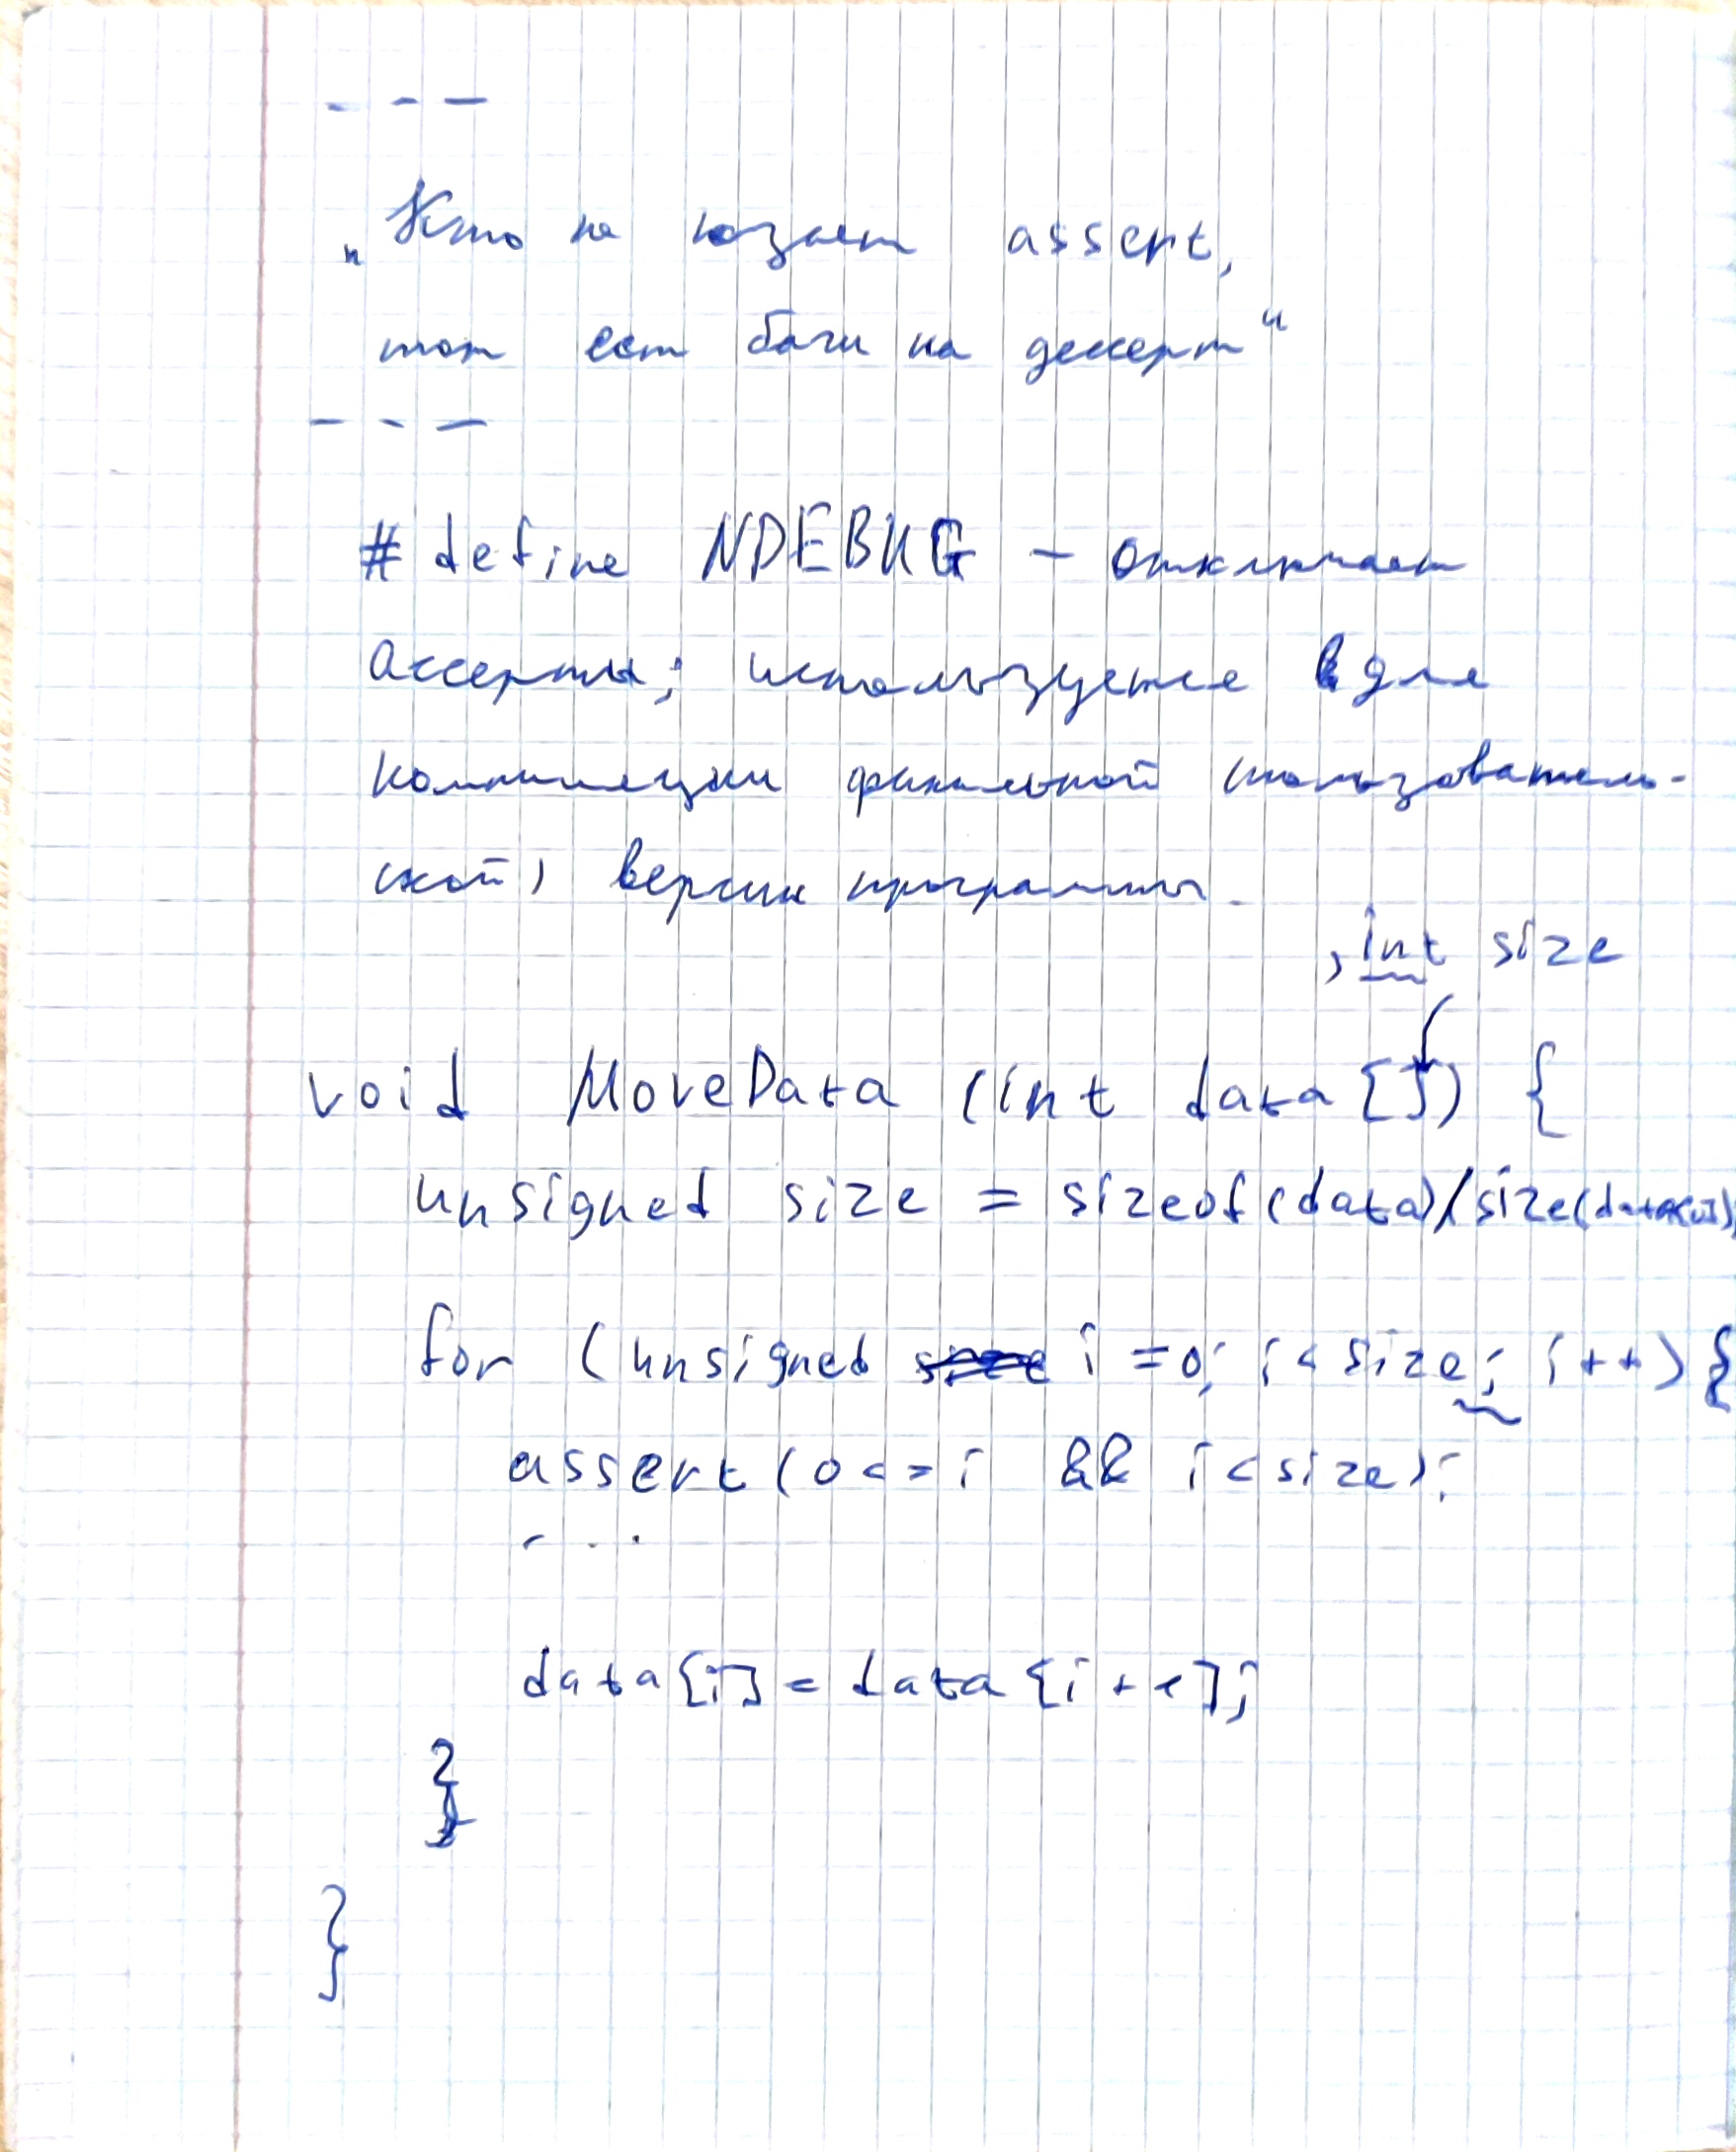 - - -
„Кто не юзает assert,
тот ест баги на десерт“
- - -
#define NDEBUG - отключает
ассерты; используется для
компиляции финальной пользователь-
ской) версии программы.
, int size
void MoveData (int data[]) {
unsigned size = sizeof(data)/size(data[0])
for (unsigned i = 0; i < size; i++) {
assert(0 <= i && i < size);
...
data[i] = data[i+1];
}
}